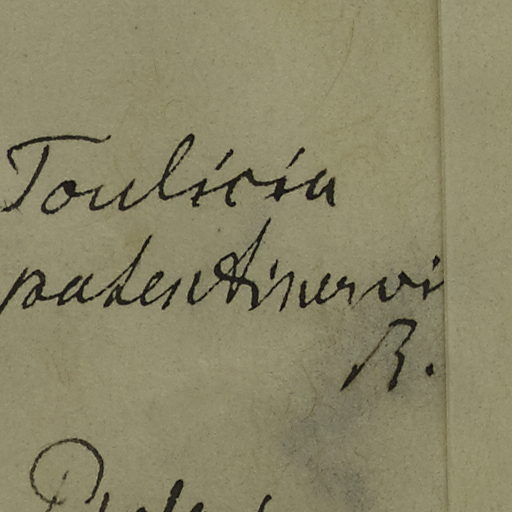 Toulicia
patentinervi
R.